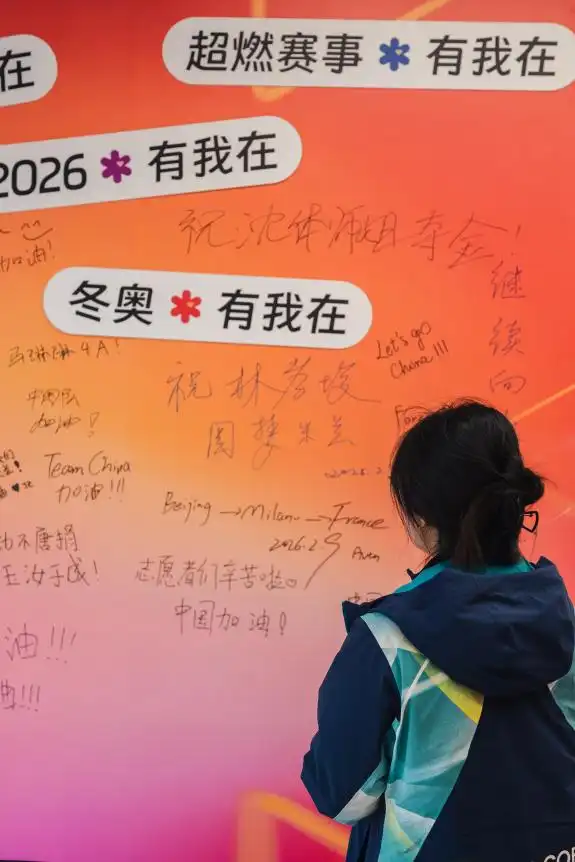 在
超燃赛事*有我在
2026*有我在
加油!
祝沈体师姐夺金!
继续向
冬奥*有我在
Let's go
China!!!
4A!
祝林孝埈
圆梦米兰
中国队
加油!
Team China
加油!!!
Beijing→Milano→France
2026.2.9
功不唐捐
玉汝于成!
志愿者们辛苦啦。
中国加油!
油!!!
!!!